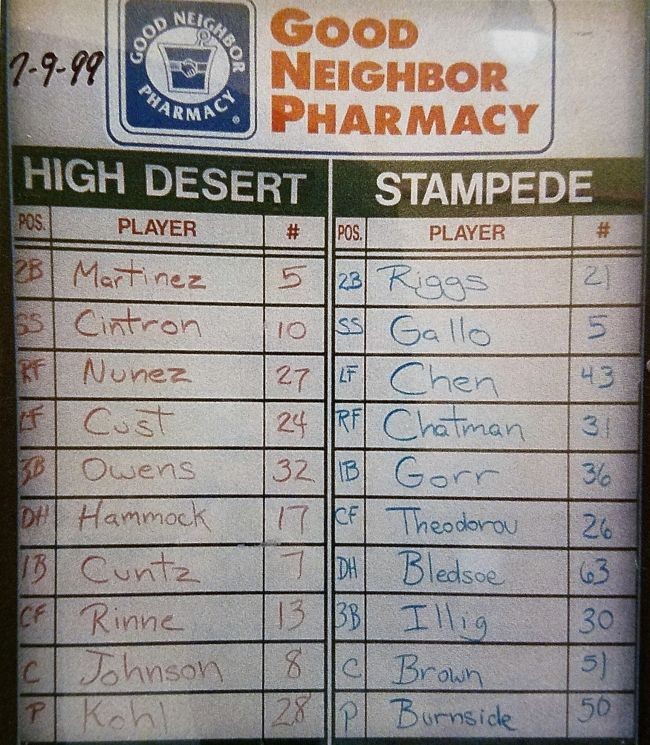 7-9-99
GOOD NEIGHBOR PHARMACY ®
GOOD
NEIGHBOR
PHARMACY
HIGH DESERT STAMPEDE
POS. PLAYER # POS. PLAYER #
2B Martinez 5 2B Riggs 21
SS Cintron 10 SS Gallo 5
RF Nunez 27 LF Chen 43
LF Cust 24 RF Chatman 31
3B Owens 32 1B Gorr 36
DH Hammock 17 CF Theodorou 26
1B Cuntz 7 DH Bledsoe 63
CF Rinne 13 3B Illig 30
C Johnson 8 C Brown 51
P Kohl 28 P Burnside 50